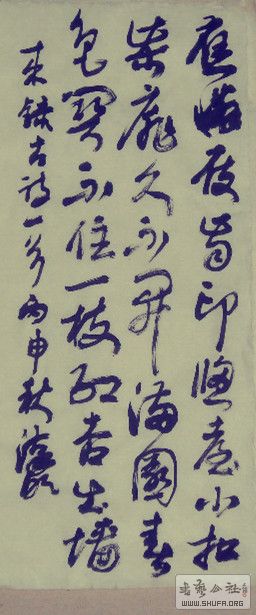 應憐屐齒印蒼苔小扣
柴扉久不開滿園春
色關不住一枝紅杏出墻
来 錄古詩一首 丙申秋
書藝公社
WWW.SHUFA.ORG